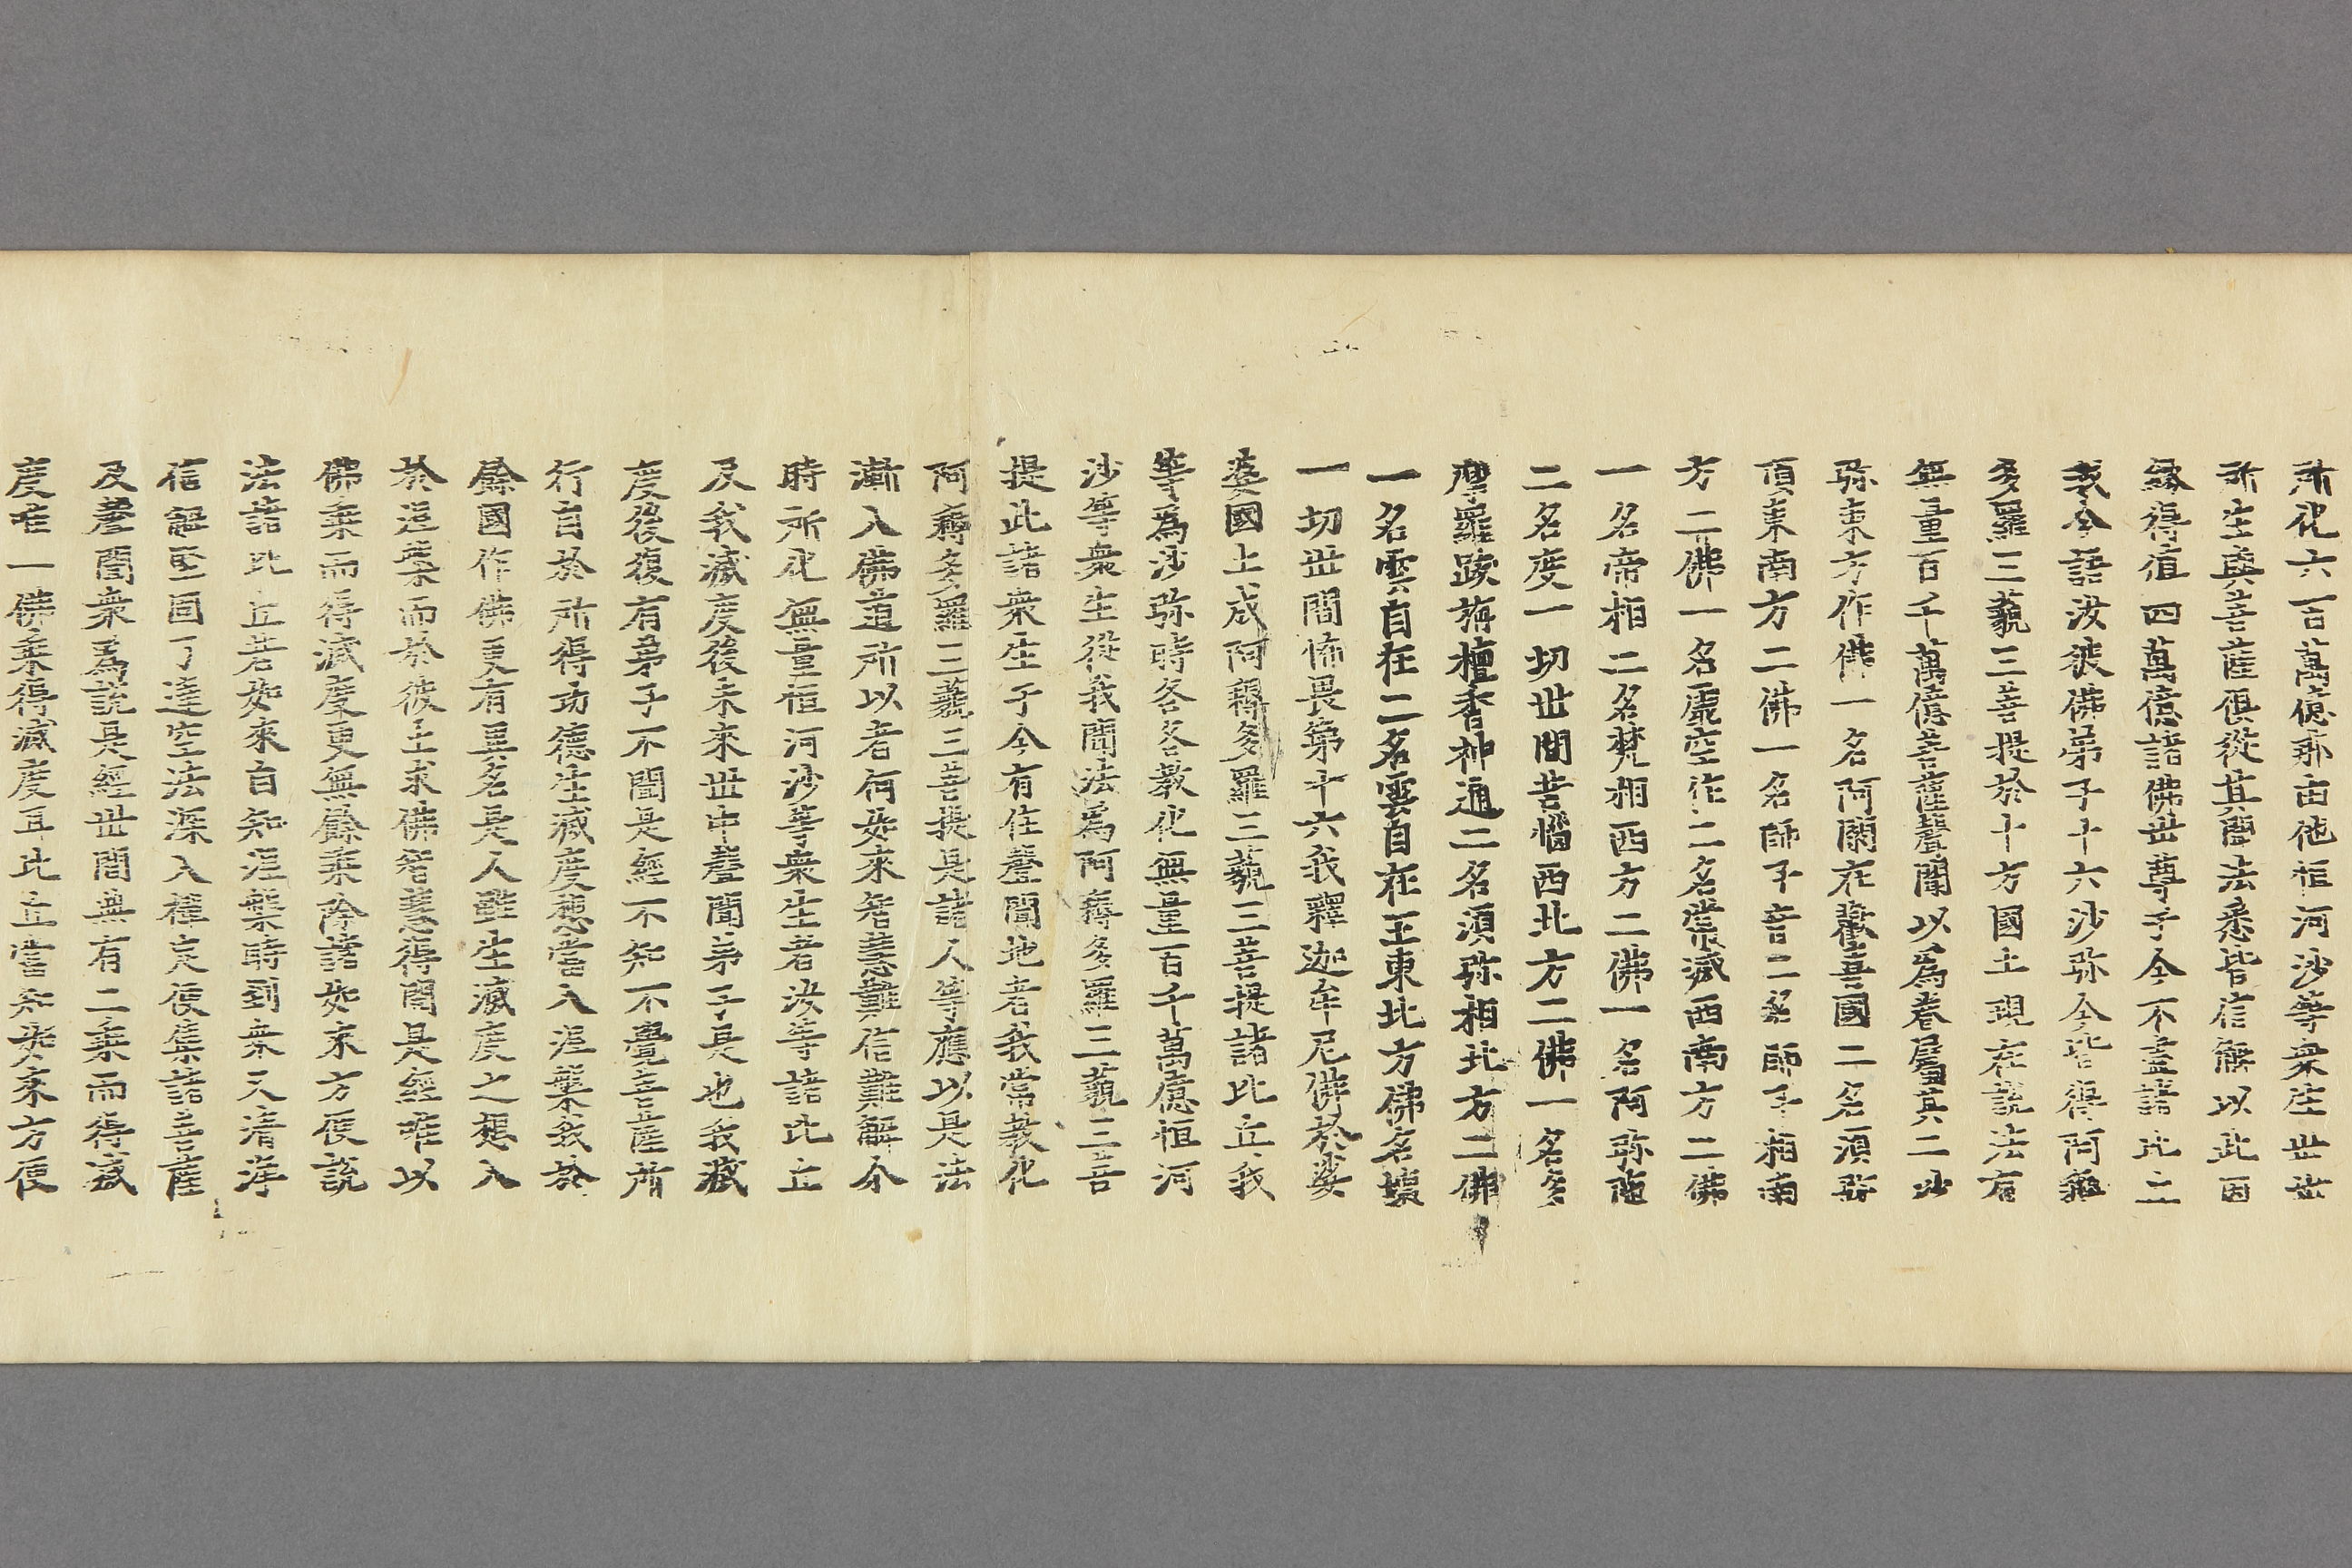 所化六百萬億那由他恒河沙等衆生世世
所生與菩薩俱從其聞法悉皆信解以此因
緣得值四萬億諸佛世尊于今不盡諸比丘
我今語汝彼佛弟子十六沙弥今皆得阿耨
多羅三藐三菩提於十方國土現在說法有
無量百千萬億菩薩聲聞以爲眷屬其二沙
弥東方作佛一名阿閦在歡喜國二名須弥
頂東南方二佛一名師子音二名師子相南
方二佛一名虛空住二名常滅西南方二佛
一名帝相二名梵相西方二佛一名阿弥陁
二名度一切世間苦惱西北方二佛一名多
摩羅跋栴檀香神通二名須弥相北方二佛
一名雲自在二名雲自在王東北方佛名壞
一切世間怖畏第十六我釋迦牟尼佛於娑
婆國土成阿耨多羅三藐三菩提諸比丘我
等爲沙弥時各各教化無量百千萬億恒河
沙等衆生從我聞法爲阿耨多羅三藐三菩
提此諸衆生于今有住聲聞地者我常教化
阿耨多羅三藐三菩提是諸人等應以是法
漸入佛道所以者何如來智慧難信難解尒
時所化無量恒河沙等衆生者汝等諸比丘
及我滅度後未來世中聲聞弟子是也我滅
度後復有弟子不聞是經不知不覺菩薩所
行自於所得功德生滅度想當入涅槃我於
餘國作佛更有異名是人雖生滅度之想入
於涅槃而於彼土求佛智慧得聞是經唯以
佛乘而得滅度更無餘乘除諸如來方便說
法諸比丘若如來自知涅槃時到衆又清淨
信解堅固了達空法深入禪定便集諸菩薩
及聲聞衆爲說是經世間無有二乘而得滅
度唯一佛乘得滅度耳比丘當知如來方便